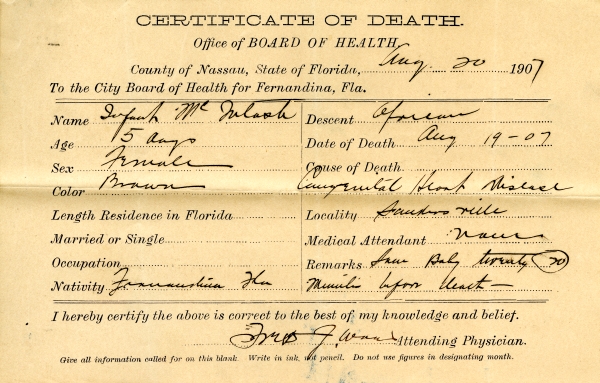 CERTIFICATE OF DEATH.
Office of BOARD OF HEALTH
County of Nassau, State of Florida, Aug. 20 1907
To the City Board of Health for Fernandina, Fla.
Name Infant McIntosh
Descent African
Age 5 days
Date of Death Aug 19-07
Sex Female
Cause of Death
Color Brown
Congenital Heart Disease
Length Residence in Florida
Locality Sandersville
Married or Single
Medical Attendant None
Occupation
Remarks Saw Baby twenty (20)
Nativity Fernandina Fla
Minutes before death
I hereby certify the above is correct to the best of my knowledge and belief.
J. Attending Physician.
Give all information called for on this blank. Write in ink, not pencil. Do not use figures in designating month.